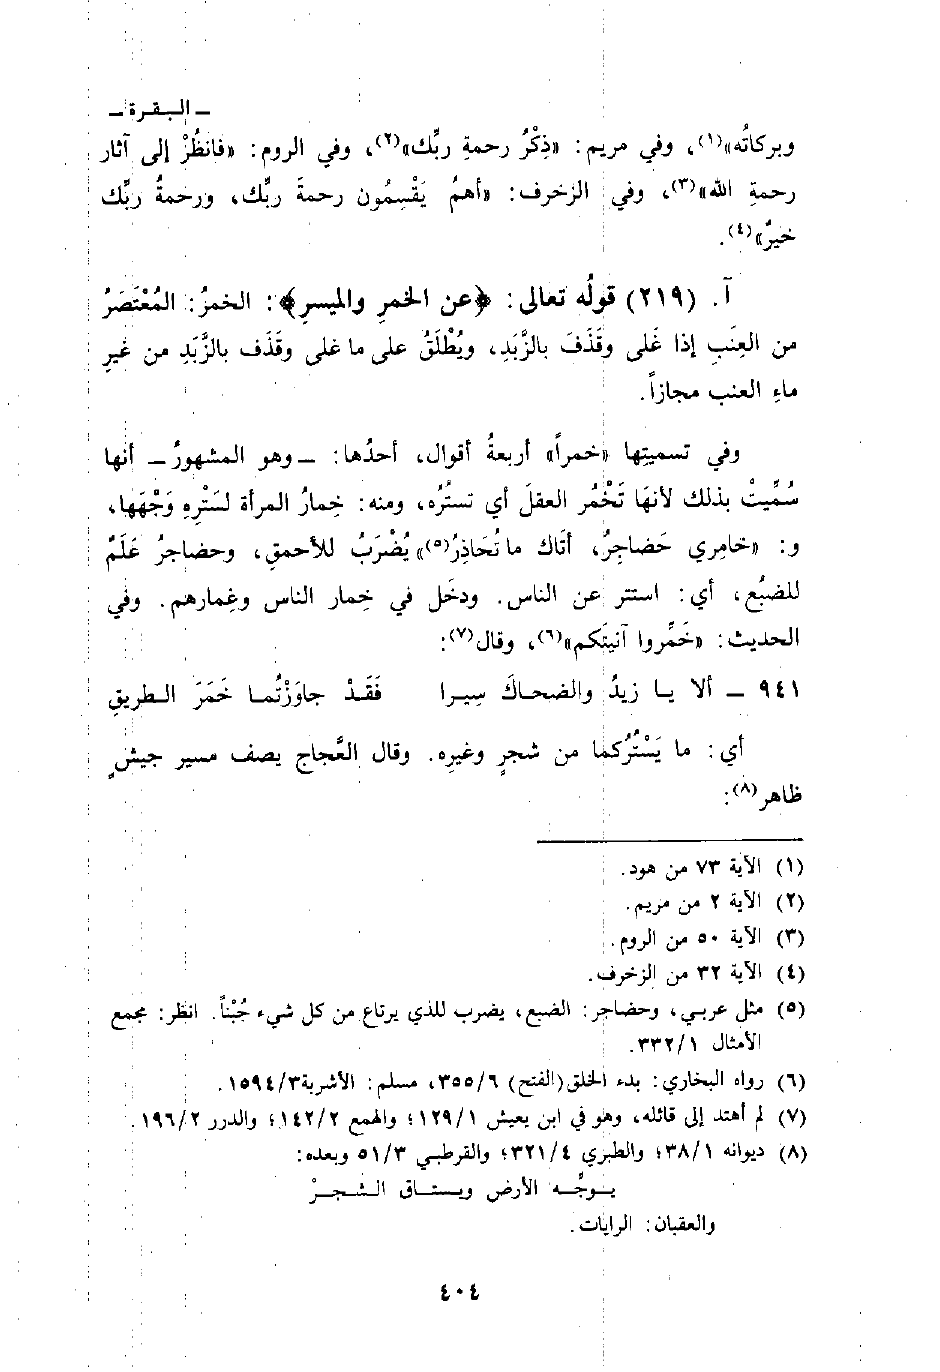 ـ البقرة ـ
وبركاتُه»(١)، وفي مريم: «ذِكْرُ رحمةِ ربِّك»(٢)، وفي الروم: «فانظُرْ إلى آثار
رحمةِ الله»(٣)، وفي الزخرف: «أهمُ يَقْسِمُون رحمةَ ربِّك، ورحمةُ ربِّك
خيرٌ»(٤).
آ. (٢١٩) قولُه تعالى: ﴿عن الخمرِ والميسرِ﴾: الخمرُ: المُعْتَصَرُ
من العِنَبِ إذا غَلى وقَذَفَ بالزَّبَدِ، ويُطْلَقُ على ما غلى وقَذَف بالزَّبَدِ من غيرِ
ماءِ العنب مجازاً.
وفي تسميتِها «خمراً» أربعةُ أقوال، أحدُها: ـ وهو المشهورُ ـ أنها
سُمِّيتْ بذلك لأنهَا تَخْمُر العقلَ أي تستُرُه، ومنه: خِمارُ المرأة لسَتْرِهِ وَجْهَها،
و: «خامِري حَضاجِرُ، أتاك ما تُحَاذِرُ(٥)» يُضْرَبُ للأحمقِ، وحضاجرُ عَلَمٌ
للضبُع، أي: استتر عن الناس. ودخَل في خِمار الناس وغِمارهم. وفي
الحديث: «خَمِّروا آنيتَكم»(٦)، وقال(٧):
٩٤١ ـ ألا يا زيدُ والضحاكَ سِيرا فَقَدْ جاوَزْتُما خَمَرَ الطريقِ
أي: ما يَسْتُرُكما من شجرٍ وغيرِه. وقال العَّجاج يصف مسير جيشٍ
ظاهر(٨):
(١) الآية ٧٣ من هود.
(٢) الآية ٢ من مريم.
(٣) الآية ٥٠ من الروم.
(٤) الآية ٣٢ من الزخرف.
(٥) مثل عربي، وحضاجر: الضبع، يضرب للذي يرتاع من كل شيء جُبْناً. انظر: مجمع
الأمثال ٣٣٢/١.
(٦) رواه البخاري: بدء الخلق (الفتح) ٣٥٥/٦، مسلم: الأشربة ١٥٩٤/٣.
(٧) لم أهتد إلى قائله، وهو في ابن يعيش ١٢٩/١؛ والهمع ١٤٢/٢؛ والدرر ١٩٦/٢.
(٨) ديوانه ٣٨/١؛ والطبري ٣٢١/٤؛ والقرطبي ٥١/٣ وبعده:
يوجِّه الأرض ويستاق الشجرْ
والعقبان: الرايات.
٤٠٤